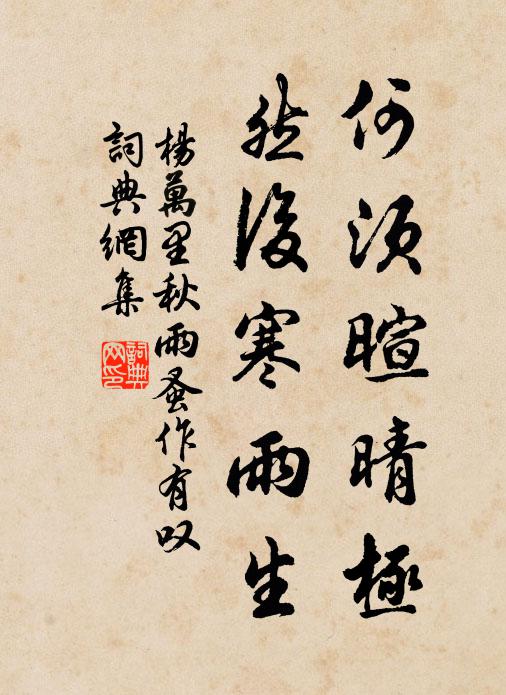 何須暄晴極
然後寒雨生
楊萬里秋雨蚤作有叹
詞典網集
詞典网印